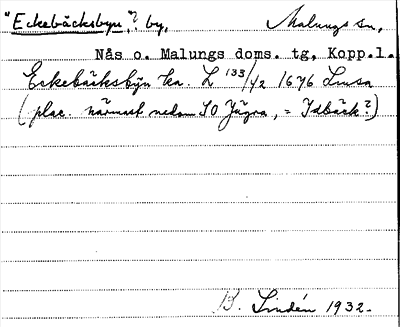 "Eckebäcksbyn"? by, Malungs sn,
Nås o. Malungs doms. tg, Kopp.l.
Eckebäcksbÿn ka. L 133/42 1676 Lmsa
(plac. närmast nedom SO Yägra, = Idbäck?)
B. Lindén 1932.